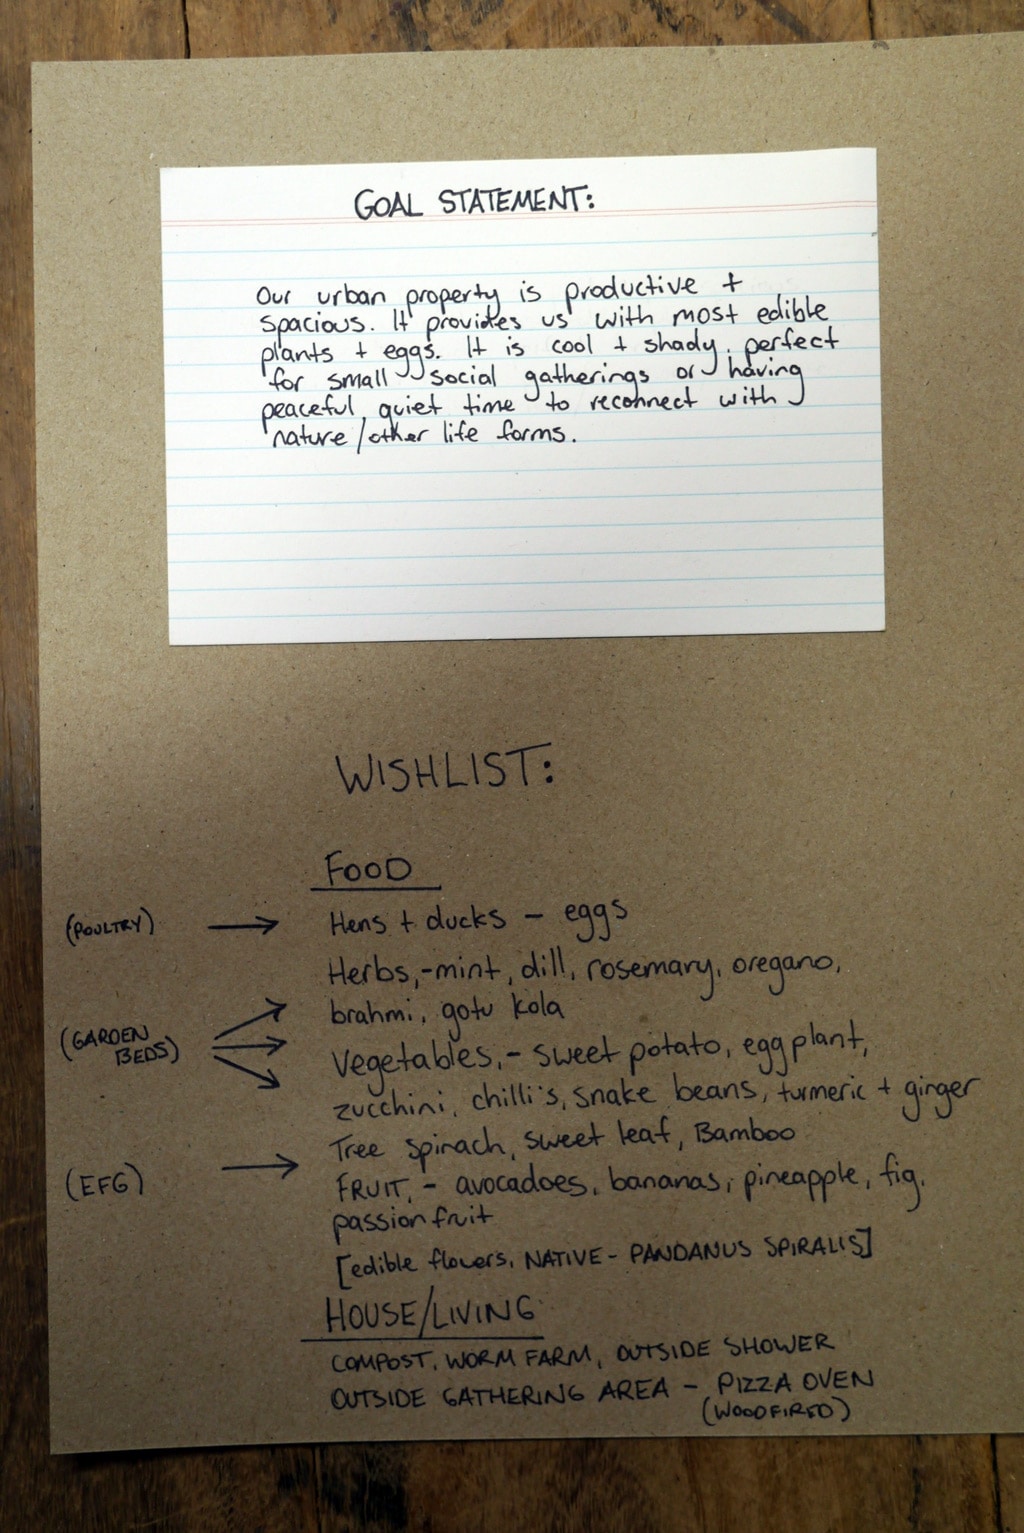 GOAL STATEMENT:
Our urban property is productive +
spacious. It provides us with most edible
plants + eggs. It is cool + shady, perfect
for small social gatherings or having
peaceful, quiet time to reconnect with
nature/other life forms.
WISHLIST:
FOOD
(POULTRY) → Hens + ducks - eggs
Herbs, - mint, dill, rosemary, oregano,
brahmi, gotu kola
(GARDEN
BEDS)
Vegetables, - sweet potato, eggplant,
zucchini, chilli's, snake beans, turmeric + ginger
Tree spinach, sweet leaf, Bamboo
(EFG) → FRUIT, - avocadoes, bananas, pineapple, fig,
passionfruit
[edible flowers, NATIVE - PANDANUS SPIRALIS]
HOUSE/LIVING
COMPOST, WORM FARM, OUTSIDE SHOWER
OUTSIDE GATHERING AREA - PIZZA OVEN
(WOODFIRED)